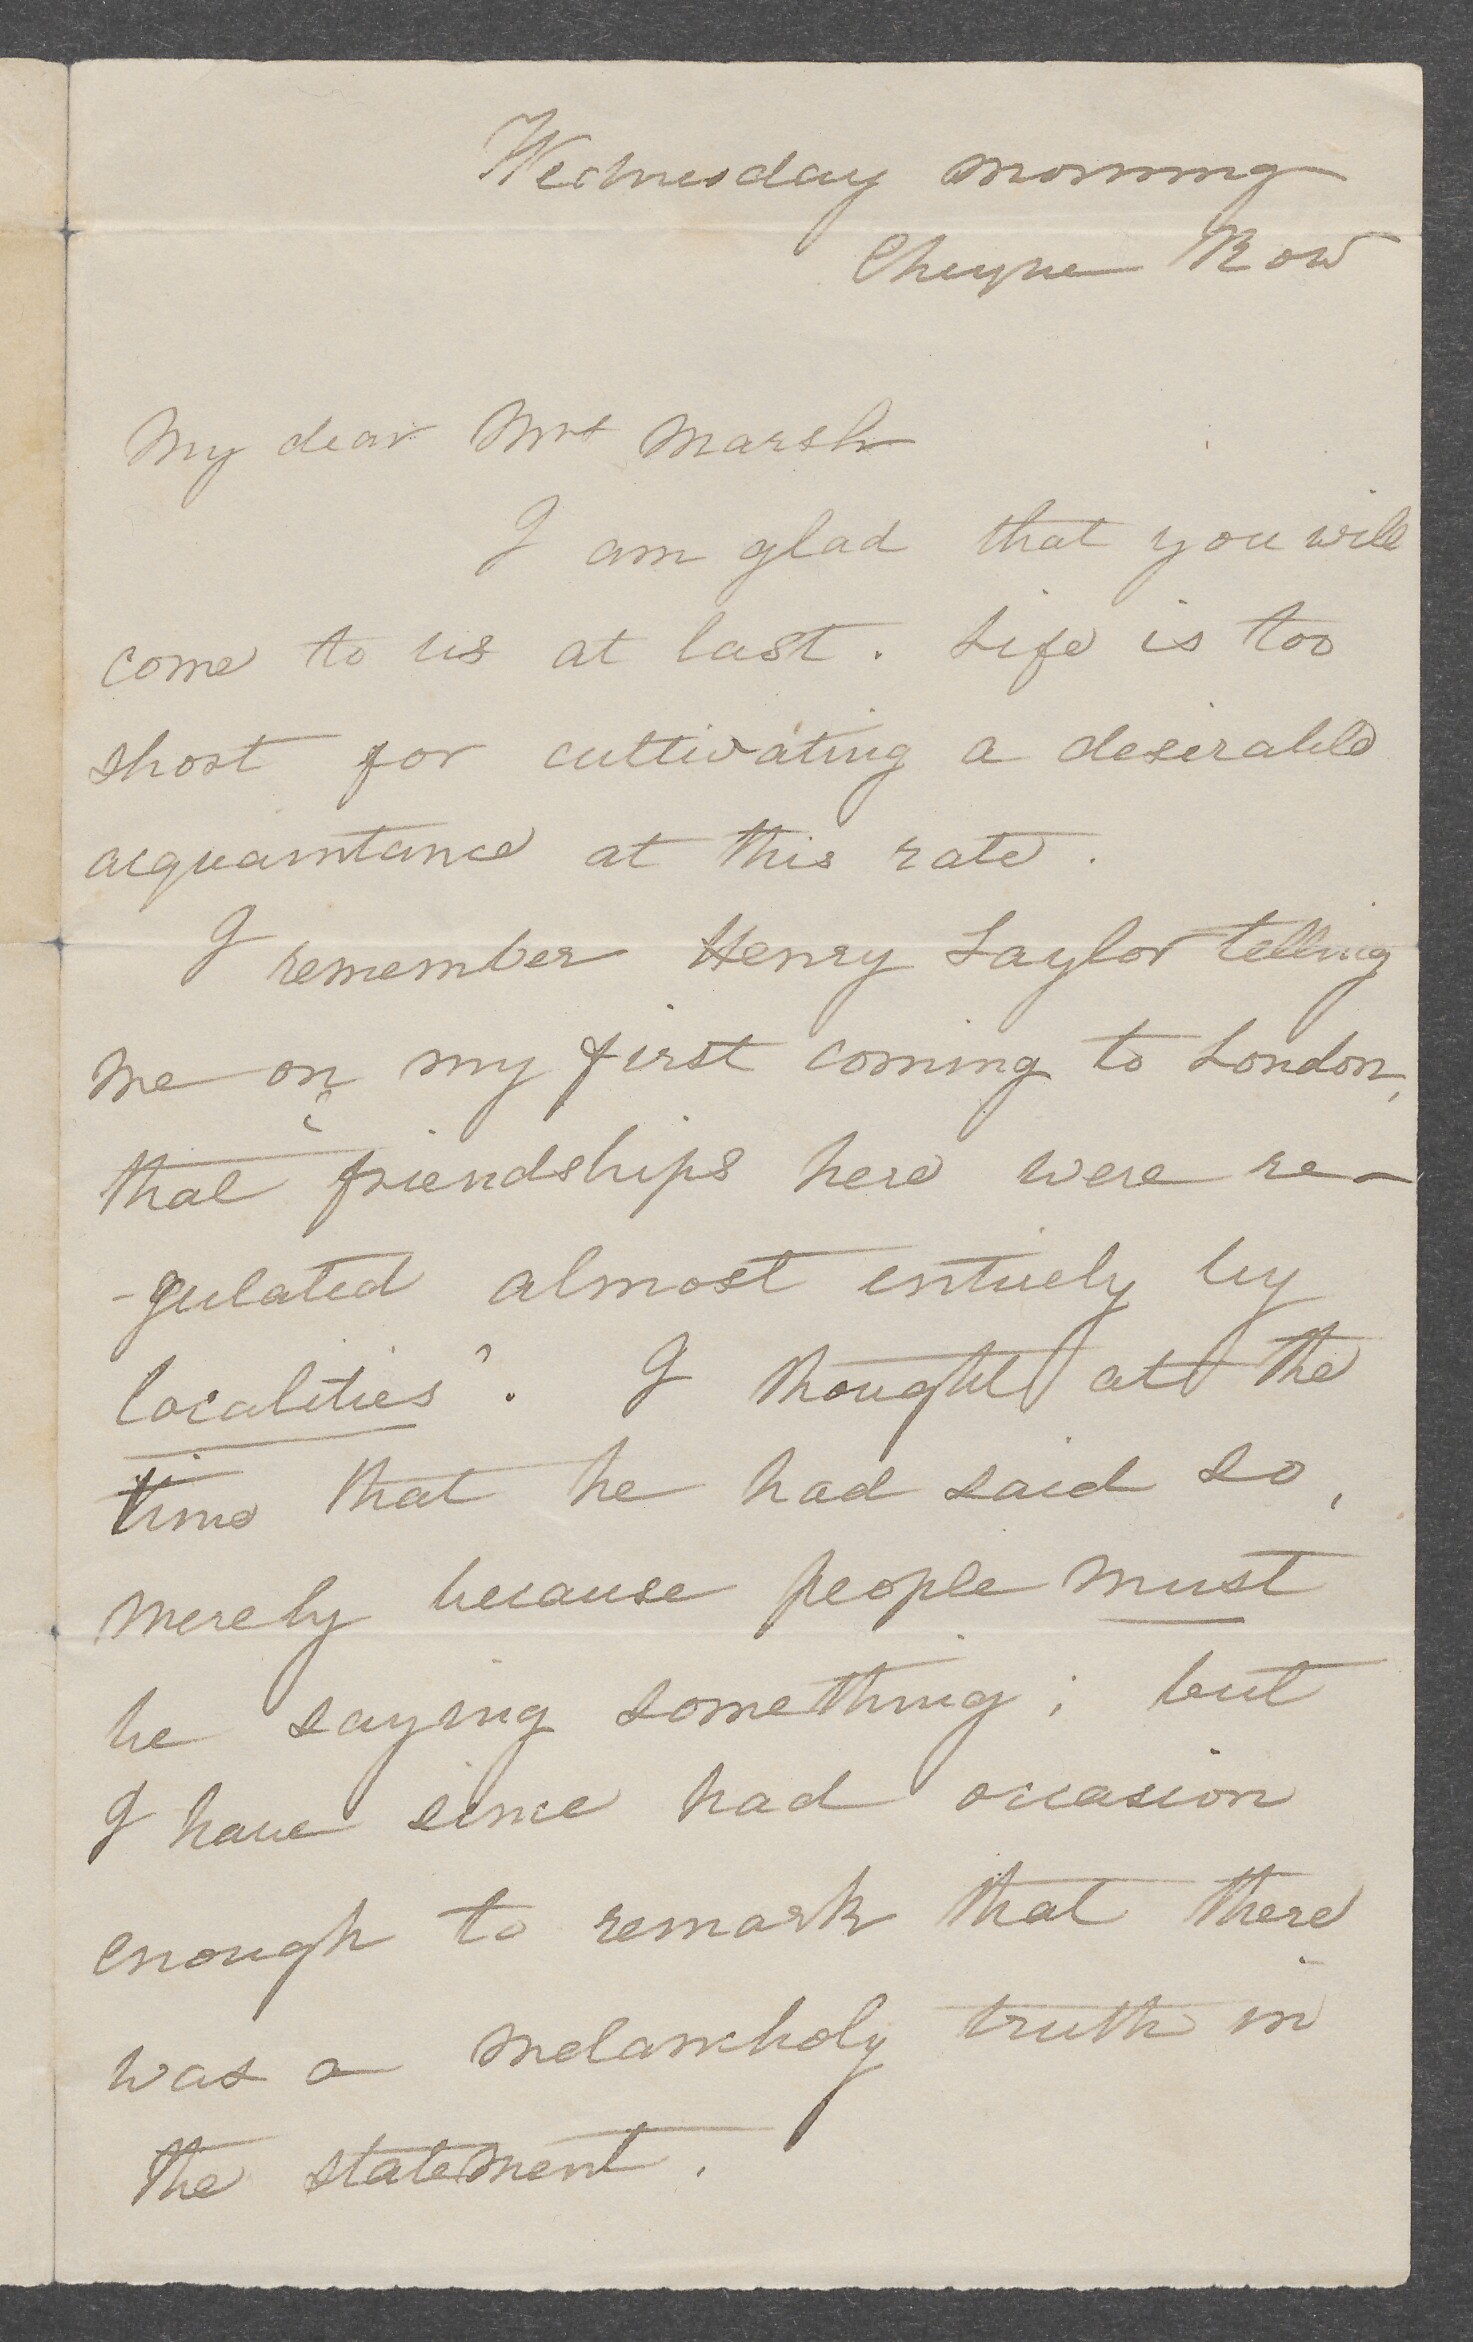 Wednesday morning
Cheyne Row
My dear Mrs Marsh
I am glad that you will
come to us at last. Life is too
short for cultivating a desirable
acquaintance at this rate.
I remember Henry Taylor telling
me on my first coming to London,
that "friendships here were re-
-gulated almost entirely by
localities". I thought at the
time that he had said so,
merely because people must
be saying something; but
I have since had occasion
enough to remark that there
was a melancholy truth in
the statement.